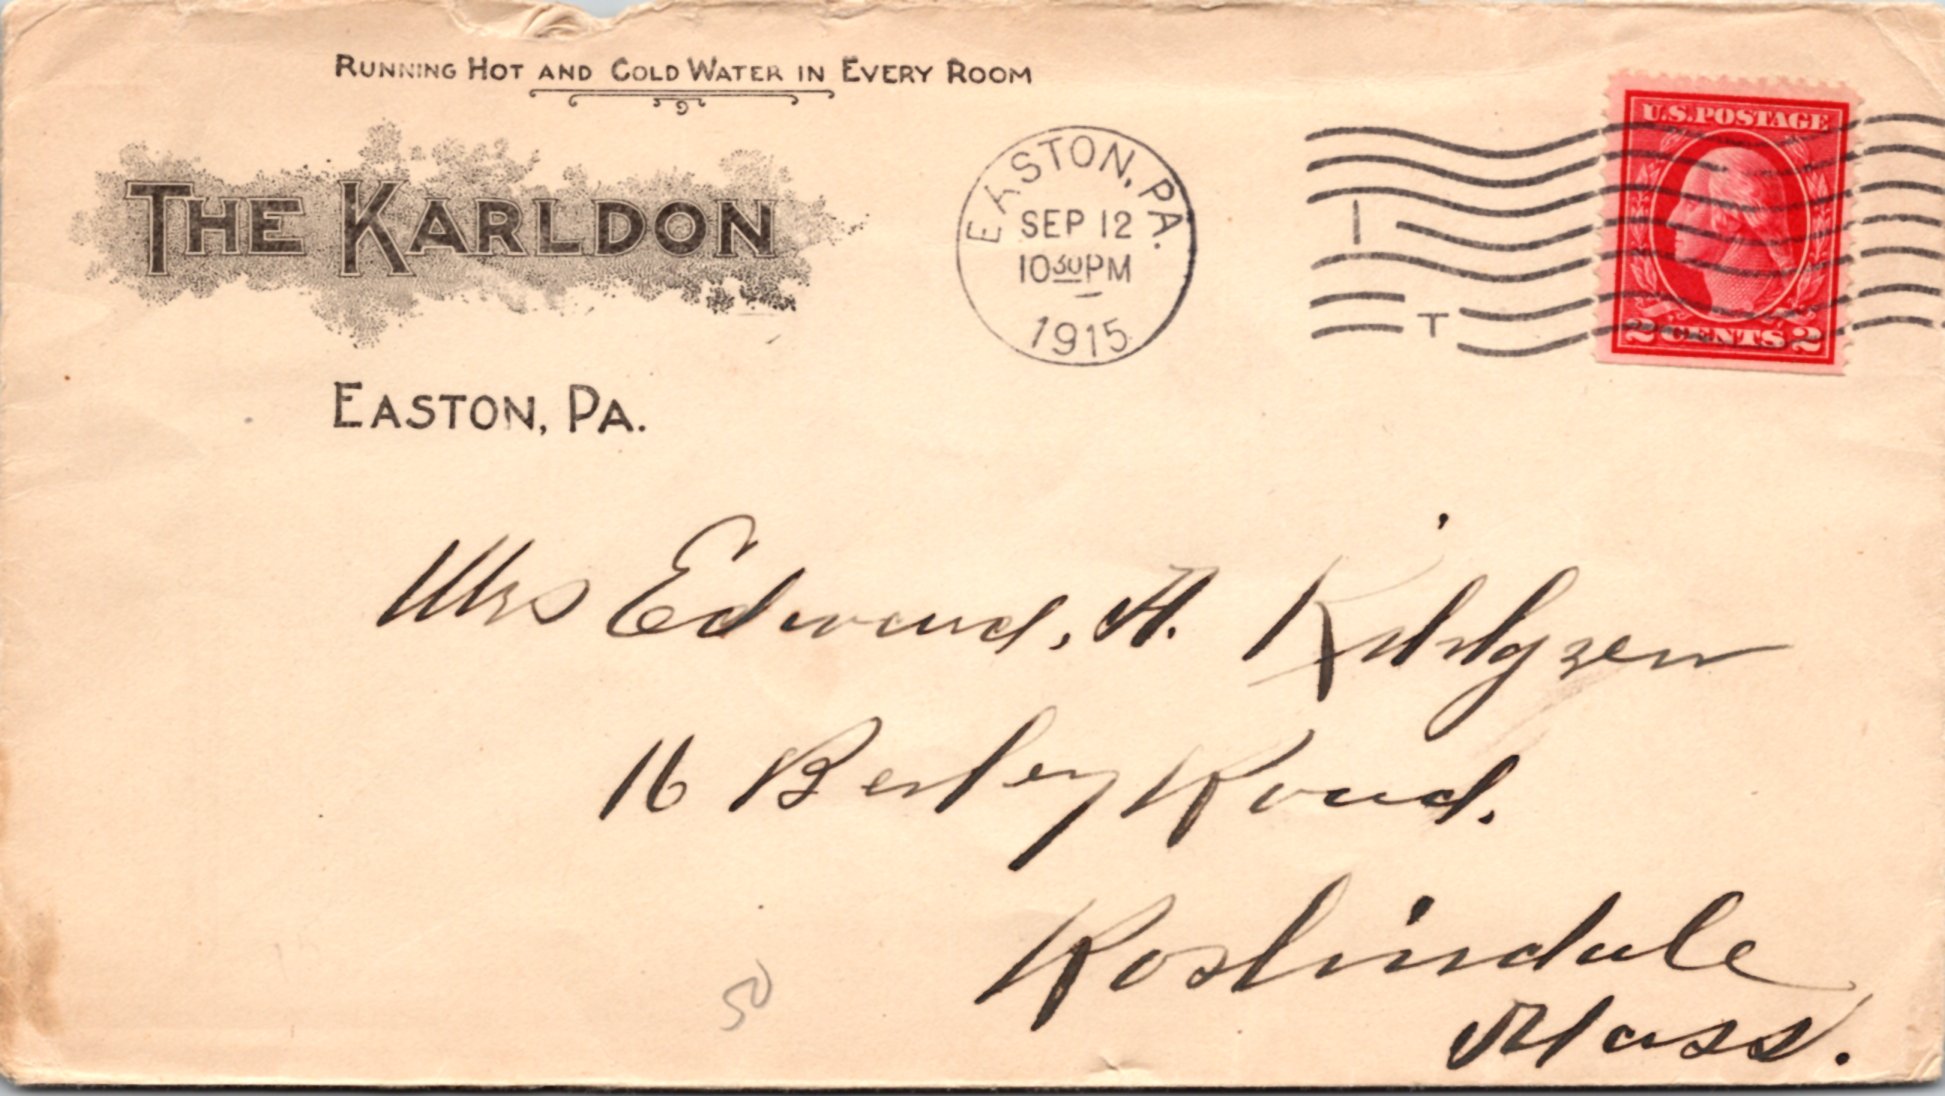 RUNNING HOT AND COLD WATER IN EVERY ROOM
THE KARLDON
EASTON, PA.
EASTON, PA.
SEP 12
10 30 PM
1915
I
T
U.S. POSTAGE
2 CENTS 2
Mrs Edward, H.
16 Road.
Roslindale
Mass.
50